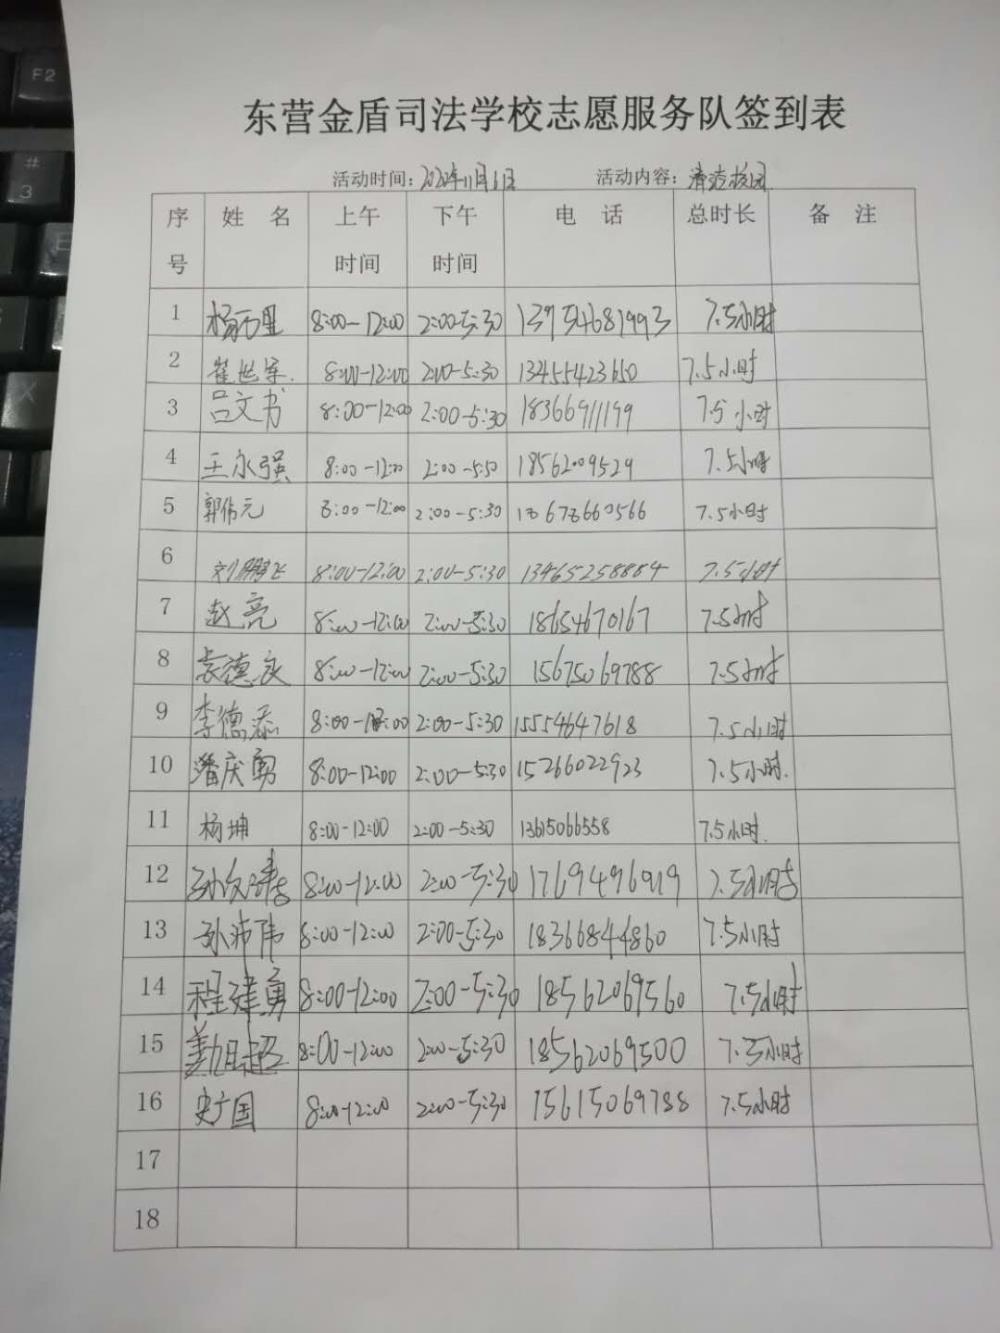 F2
#
3
X
东营金盾司法学校志愿服务队签到表
活动时间:2022年11月6日 活动内容:清洁校园
序号 姓 名 上午时间 下午时间 电 话 总时长 备 注
1 杨万里 8:00-12:00 2:00-5:30 13954681993 7.5小时
2 崔世军. 8:00-12:00 2:00-5:30 13455423650 7.5小时
3 吕文书 8:00-12:00 2:00-5:30 18366911199 7.5小时
4 王永强 8:00-12:00 2:00-5:30 18562009529 7.5小时
5 郭伟元 8:00-12:00 2:00-5:30 18678660566 7.5小时
6 刘鹏飞 8:00-12:00 2:00-5:30 13465258884 7.5小时
7 赵亮 8:00-12:00 2:00-5:30 18654670167 7.5小时
8 袁德良 8:00-12:00 2:00-5:30 15675069788 7.5小时
9 李德添 8:00-12:00 2:00-5:30 15554647618 7.5小时
10 潘庆勇 8:00-12:00 2:00-5:30 15266022923 7.5小时.
11 杨坤 8:00-12:00 2:00-5:30 13615066558 7.5小时.
12 孙文 8:00-12:00 2:00-5:30 1769496919 7.5小时
13 孙沛伟 8:00-12:00 2:00-5:30 18366844860 7.5小时
14 程建勇 8:00-12:00 2:00-5:30 18562069560 7.5小时
15 姜旭超 8:00-12:00 2:00-5:30 18562069500 7.5小时
16 史广国 8:00-12:00 2:00-5:30 15615069788 7.5小时
17
18